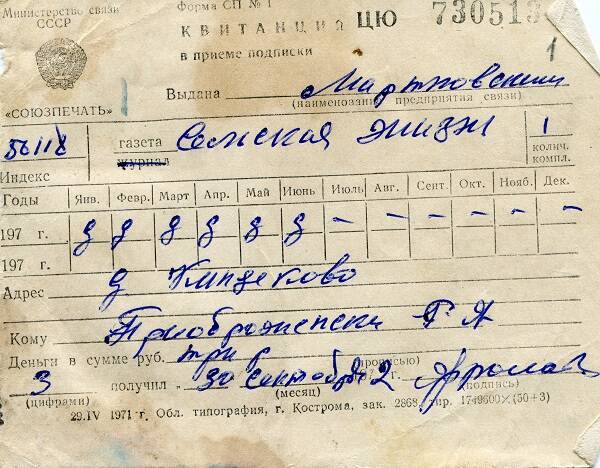 Министерство связи СССР
Форма СП № 1
КВИТАНЦИЯ ЦЮ 730513
в приеме подписки
1
Выдана Мартыновским
(наименование предприятия связи)
„СОЮЗПЕЧАТЬ"
50118 газета Сельская жизнь 1
Индекс журнал колич. компл.
Годы Янв. Февр. Март Апр. Май Июнь Июль Авг. Сент. Окт. Нояб. Дек.
197 г. д д д д д д – – – – – –
197 г.
Адрес д
Кому Г А
Деньги в сумме руб. три
(прописью)
3 получил „30 сентября 2
(цифрами) (месяц) (подпись)
29.IV 1971 г. Обл. типография, г. Кострома, зак. 2868, тир. 1749600×(50+3)